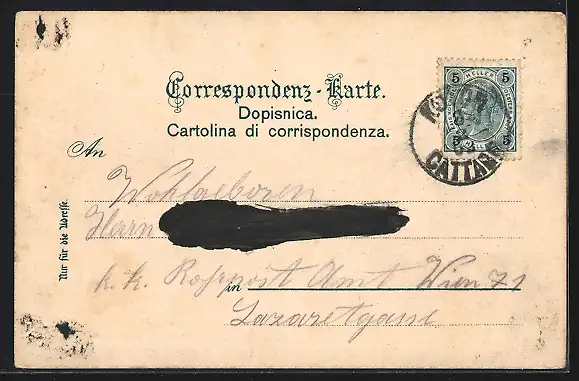 Correspondenz-Karte.
Dopisnica.
Cartolina di corrispondenza.
5 HELLER 5
5 5
CATTARO
An
Wohlgeboren
Herrn
Nur für die Adresse.
k. k. Rohrpost Amt Wien 71
in
Lazaretgasse